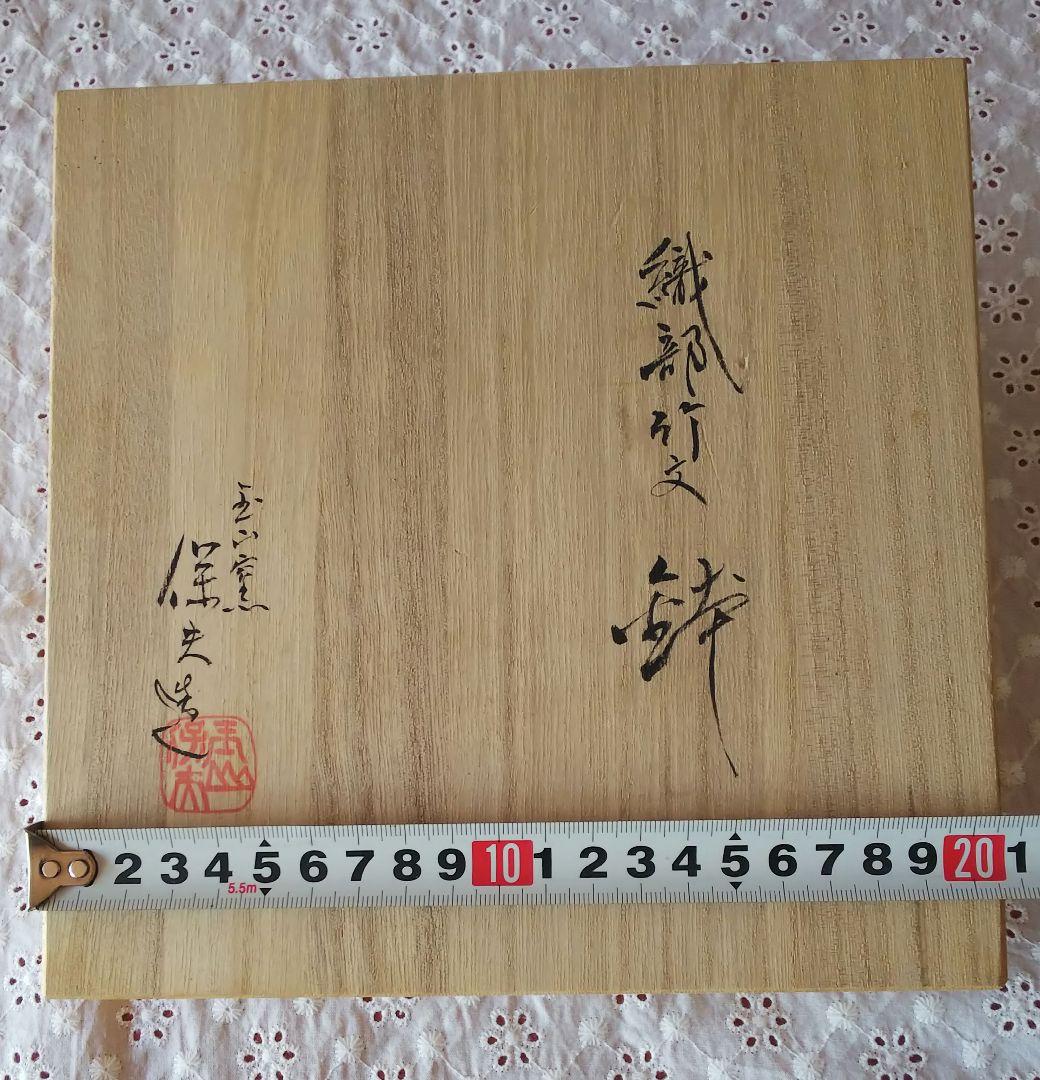 織部竹文 鉢
玉山窯
保夫造
玉山
保夫
2 3 4 5 6 7 8 9 10 1 2 3 4 5 6 7 8 9 20 1
5.5m